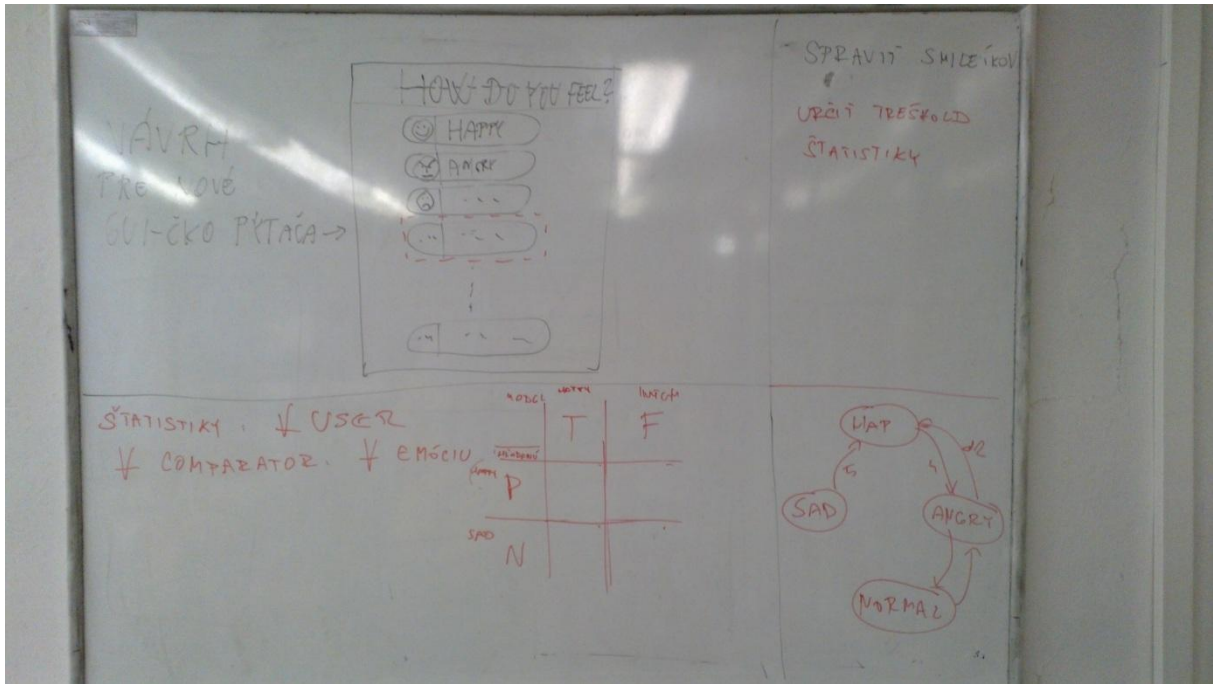 NÁVRH
PRE NOVÉ
GUI-ČKO PÝTAČA →
HOW DO YOU FEEL?
HAPPY
ANGRY
- SPRAVIŤ SMILEÍKOV
URČIŤ TREŠHOLD
ŠTATISTIKY
ŠTATISTIKY. ∀ USER
∀ COMPARATOR. ∀ EMÓCIU
MODEL
T F
HAPPY
P
SAD
N
HAP
SAD
ANGRY
NORMAL